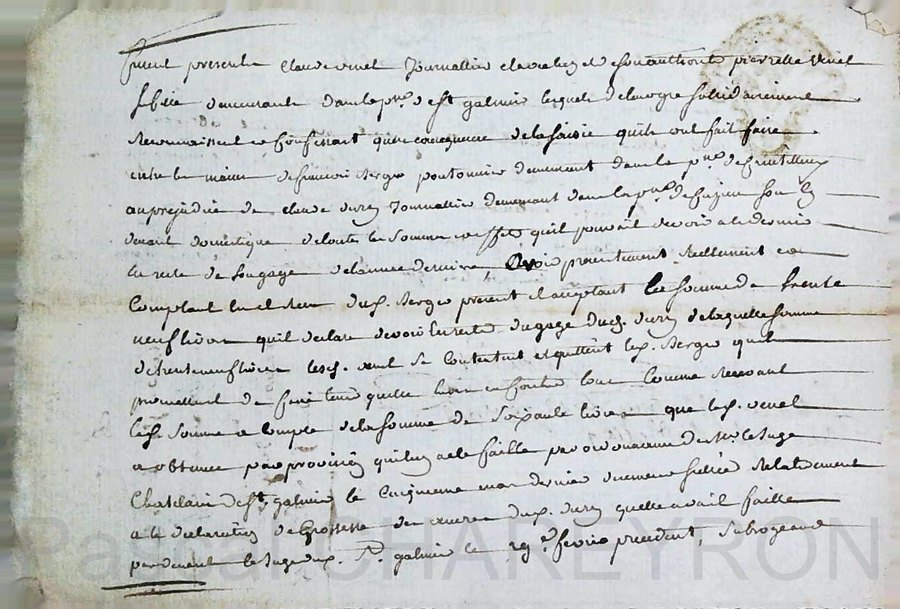 furent presents claude venel Journallier et de son authorité pierrette venel
sa fille demeurants dans la pse de st galmier lesquels de leur gre solidairement
reconnaissent et confessent qu'en consequence de la saisie qu'ils ont fait faire
entre les mains de francois Berger pontonnier demeurant dans la pse de
au prejudice de claude durey Journallier demeurant dans la pse de son
devant domestique de toutes les sommes qu'il pouvait devoir a ce dernier
du reste de son gage de l'annee derniere, avoir presentement reellement et
comptant du s. Berger present et acceptant la somme de trente
neuf livres qu'il declare devoir de reste du gage dud. durey de laquelle somme
de trente neuf livres lesd. venel se contentent et quittent led. Berger qu'ils
promettent de faire tenir quitte comme recevant
lad. somme a compte de la somme de soixante livres que lesd. venel
a obtenue par provision qui luy a ete faitte par ordonnance de Mr le Juge
Chatelain de st galmier le cinquieme mars dernier relativement
a la declaration de Grossesse des œuvres dud. durey qu'elle avait faitte
par devant le Juge dud. st galmier le 29e fevrier precedent, subrogeant
Pascal CHAREYRON